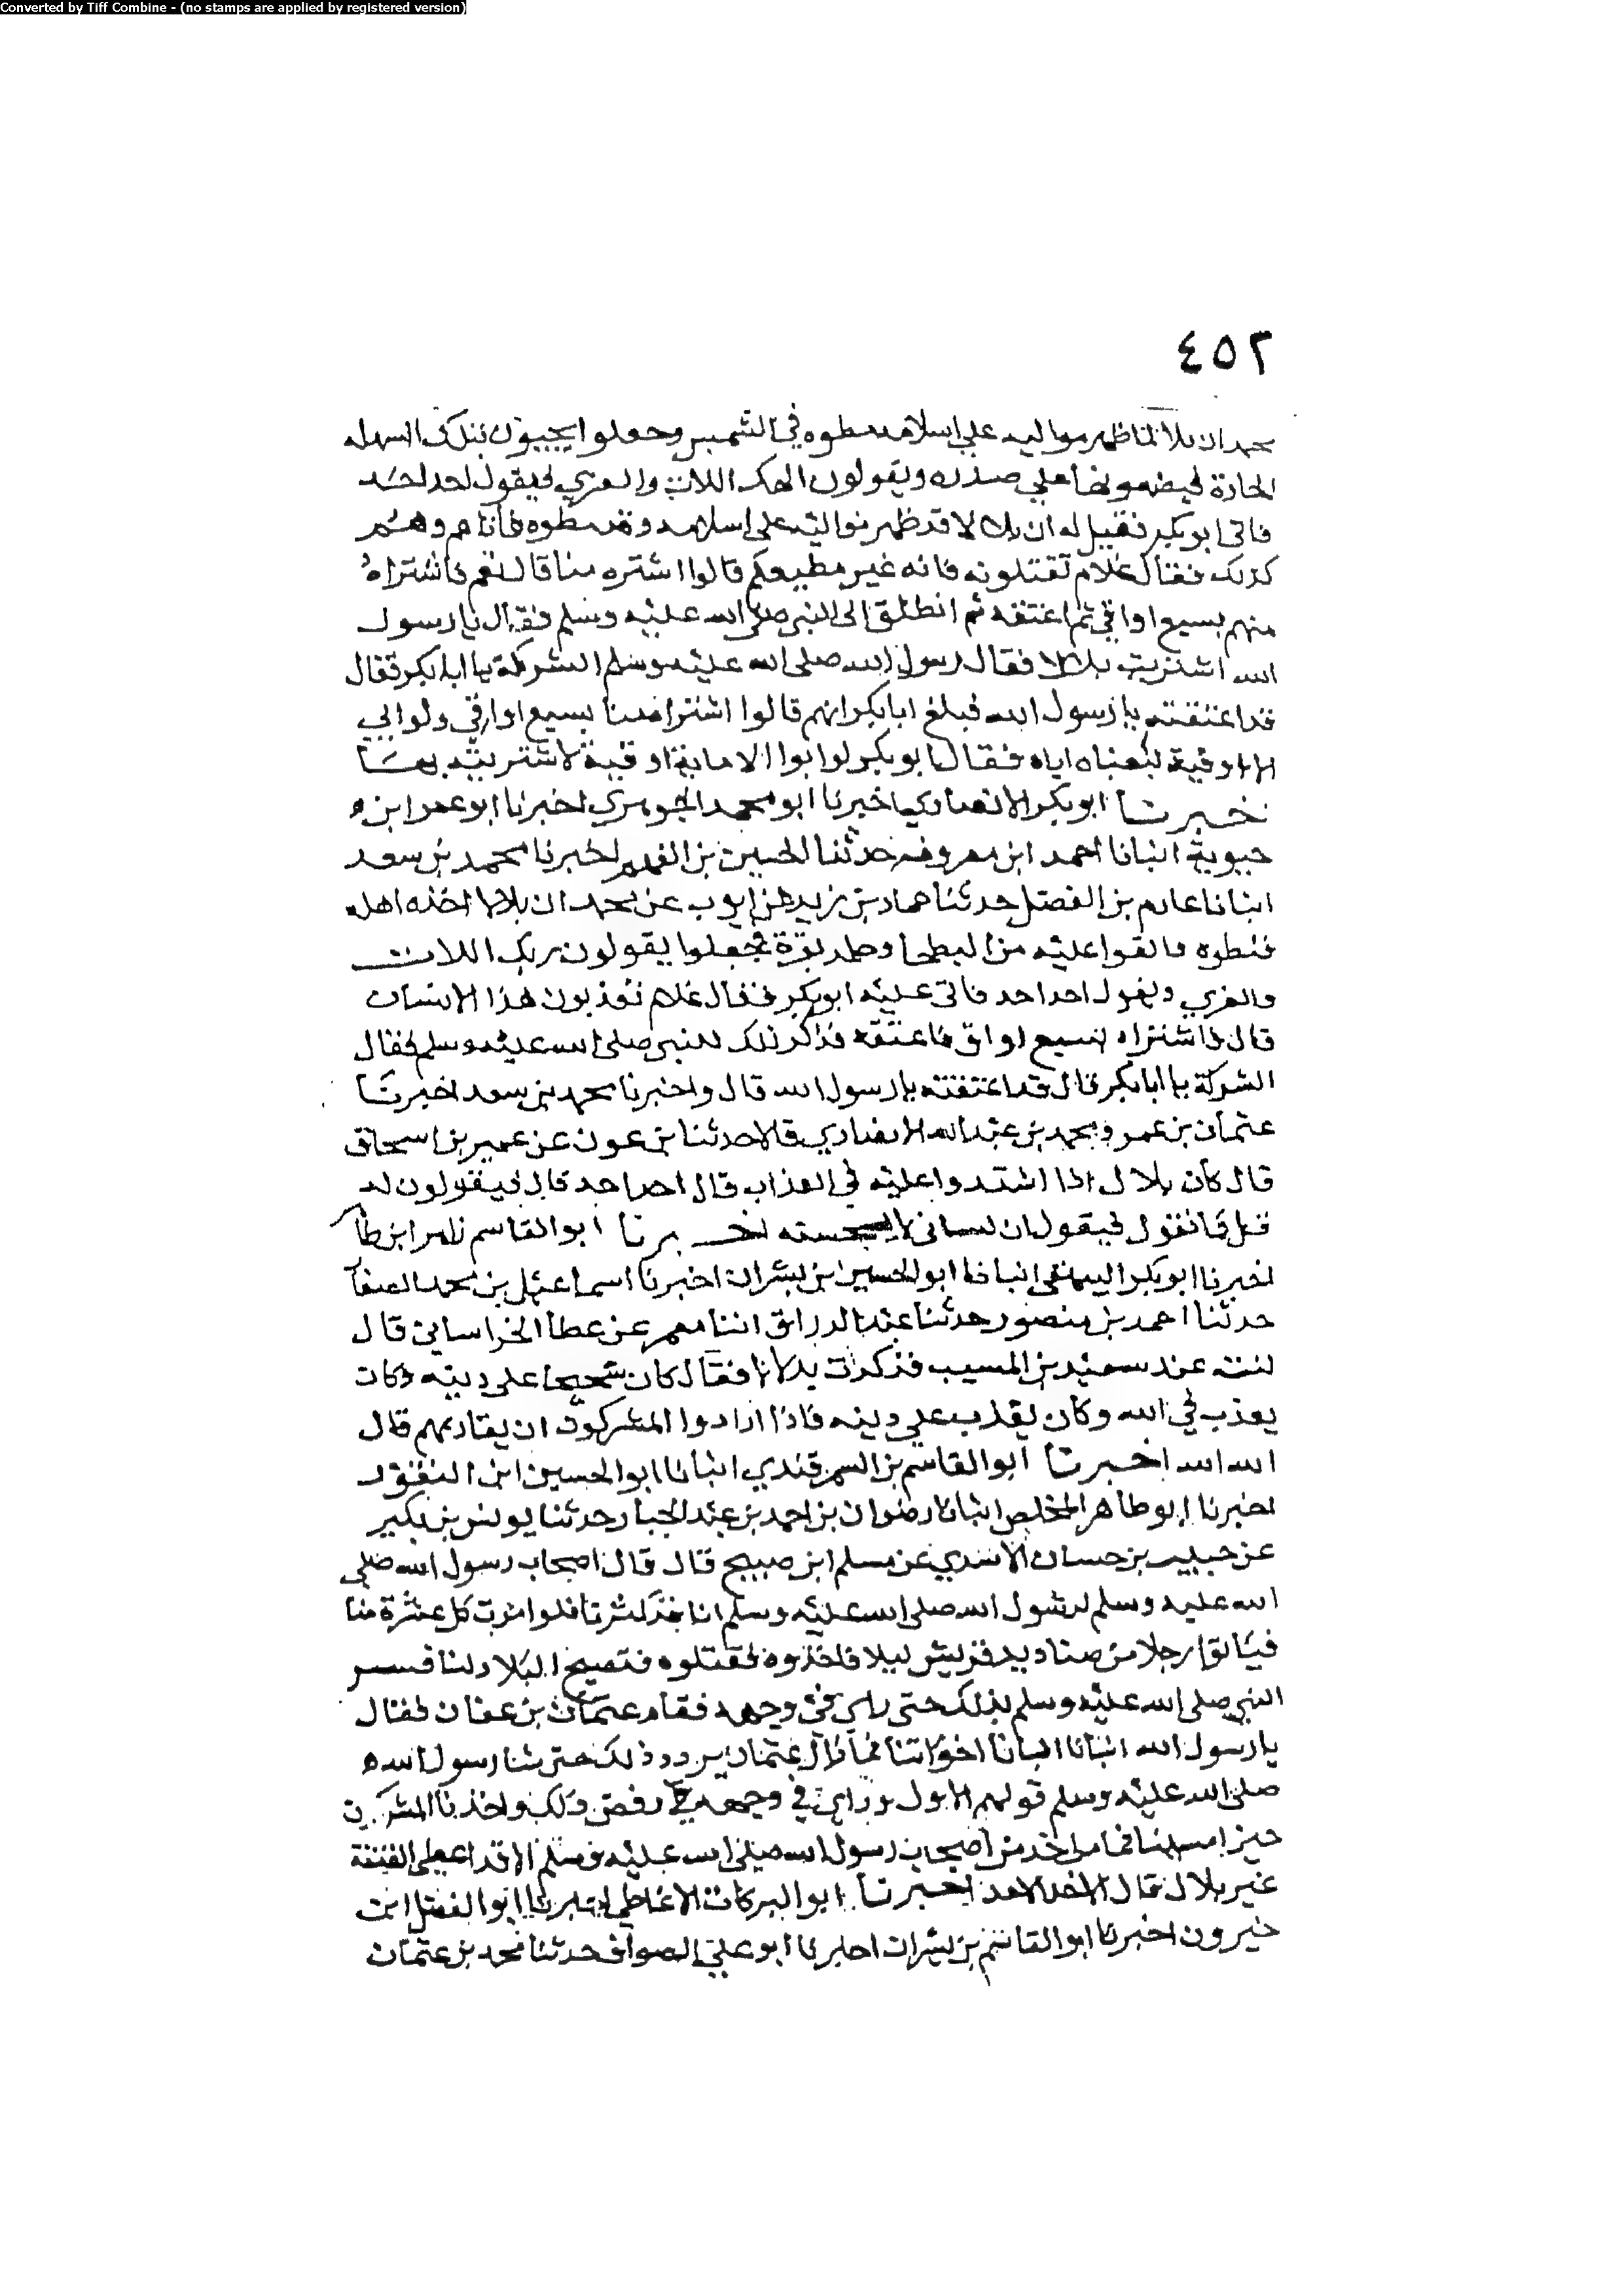 Converted by Tiff Combine - (no stamps are applied by registered version)
٤٥٢
محمد ان بلالا لما ظهر مواليه على اسلامه مطوه في الشمس وجعلوا يجيبون بتلك السهله
الحارة فيضعونها على صدره ويقولون الهك اللات والعزي فيقول احد احد
فاتى ابو بكر فقيل له ان بلالا قد ظهر مواليه على اسلامه وقد مطوه فاتاهم وهم
كذلك فقال علام تقتلونه فانه غير مطيعكم قالوا اشتره منا قال نعم فاشتراه
منهم بسبع اواقي ثم اعتقه ثم انطلق الى النبي صلى الله عليه وسلم فقال يا رسول
الله اشتريت بلالا فقال رسول الله صلى الله عليه وسلم الشركة يا ابا بكر فقال
قد اعتقته يا رسول الله فبلغ ابا بكر انهم قالوا اشترا منا بسبع اواقي ولو ابي
الا اوقية لبعناه اياه فقال ابو بكر لو ابوا الا ماية اوقية لاشتريته بها
خبرنا ابو بكر الانصاري اخبرنا ابو محمد الجوهري اخبرنا ابو عمر ابن
حيوية انبانا احمد ابن معروف حدثنا الحسين بن الفهم اخبرنا محمد بن سعد
انبانا عارم بن الفضل حدثنا حماد بن زيد عن ايوب عن محمد ان بلالا اخذه اهله
فمطوه والقوا عليه من البطحا وجلد بقرة فجعلوا يقولون ربك اللات
والعزي ويقول احد احد فاتى عليه ابو بكر فقال علام تعذبون هذا الانسان
قال فاشتراه بسبع اواق فاعتقه فذكر ذلك للنبي صلى الله عليه وسلم فقال
الشركة يا ابا بكر قال قد اعتقته يا رسول الله قال واخبرنا محمد بن سعد اخبرنا
عثمان بن عمر ومحمد بن عبد الله الانصاري قالا حدثنا بن عون عن عمير بن اسحاق
قال كان بلال اذا اشتدوا عليه في العذاب قال احد احد قال فيقولون له
قل كما نقول فيقول ان لساني لا يحسنه اخبرنا ابو القاسم زاهر ابن طا
اخبرنا ابو بكر البيهقي انبانا ابو الحسين ابن بشران اخبرنا اسماعيل بن محمد الصفار
حدثنا احمد بن منصور حدثنا عبد الرزاق انبا معمر عن عطا الخراساني قال
كنت عند سعيد بن المسيب فذكرت بلالا فقال كان شحيحا على دينه وكان
يعذب في الله وكان يعذب على دينه فاذا ارادوا المشركون ان يقاربهم قال
الله الله اخبرنا ابو القاسم بن السمرقندي انبانا ابو الحسين ابن النقور
اخبرنا ابو طاهر المخلص انبانا رضوان بن احمد بن عبد الجبار حدثنا يونس بن بكير
عن حبيب بن حسان الاسدي عن مسلم ابن صبيح قال قال اصحاب رسول الله صلى
الله عليه وسلم لرسول الله صلى الله عليه وسلم انا قد كثرنا فلو امرت كل عشرة منا
فياتوا رجلا من صناديد قريش ليلا فاخذوه فقتلوه فتصبح البلاد لنا فسر
النبي صلى الله عليه وسلم بذلك حتى راى في وجهه فقام عثمان بن عفان فقال
يا رسول الله ابنانا ابانا اخواننا فما زال عثمان يردد ذلك حتى شا رسول الله
صلى الله عليه وسلم قولهم الاول وراى في وجهه رفض ذلك واخذنا المشركين
حين امسينا فما من احد من اصحاب رسول الله صلى الله عليه وسلم الا قد اعطى الفتنة
غير بلال قال الاحد الاحد اخبرنا ابو البركات الانماطي اخبرنا ابو الفضل ابن
خيرون اخبرنا ابو القاسم بن بشران اخبرنا ابو علي الصواف حدثنا محمد بن عثمان